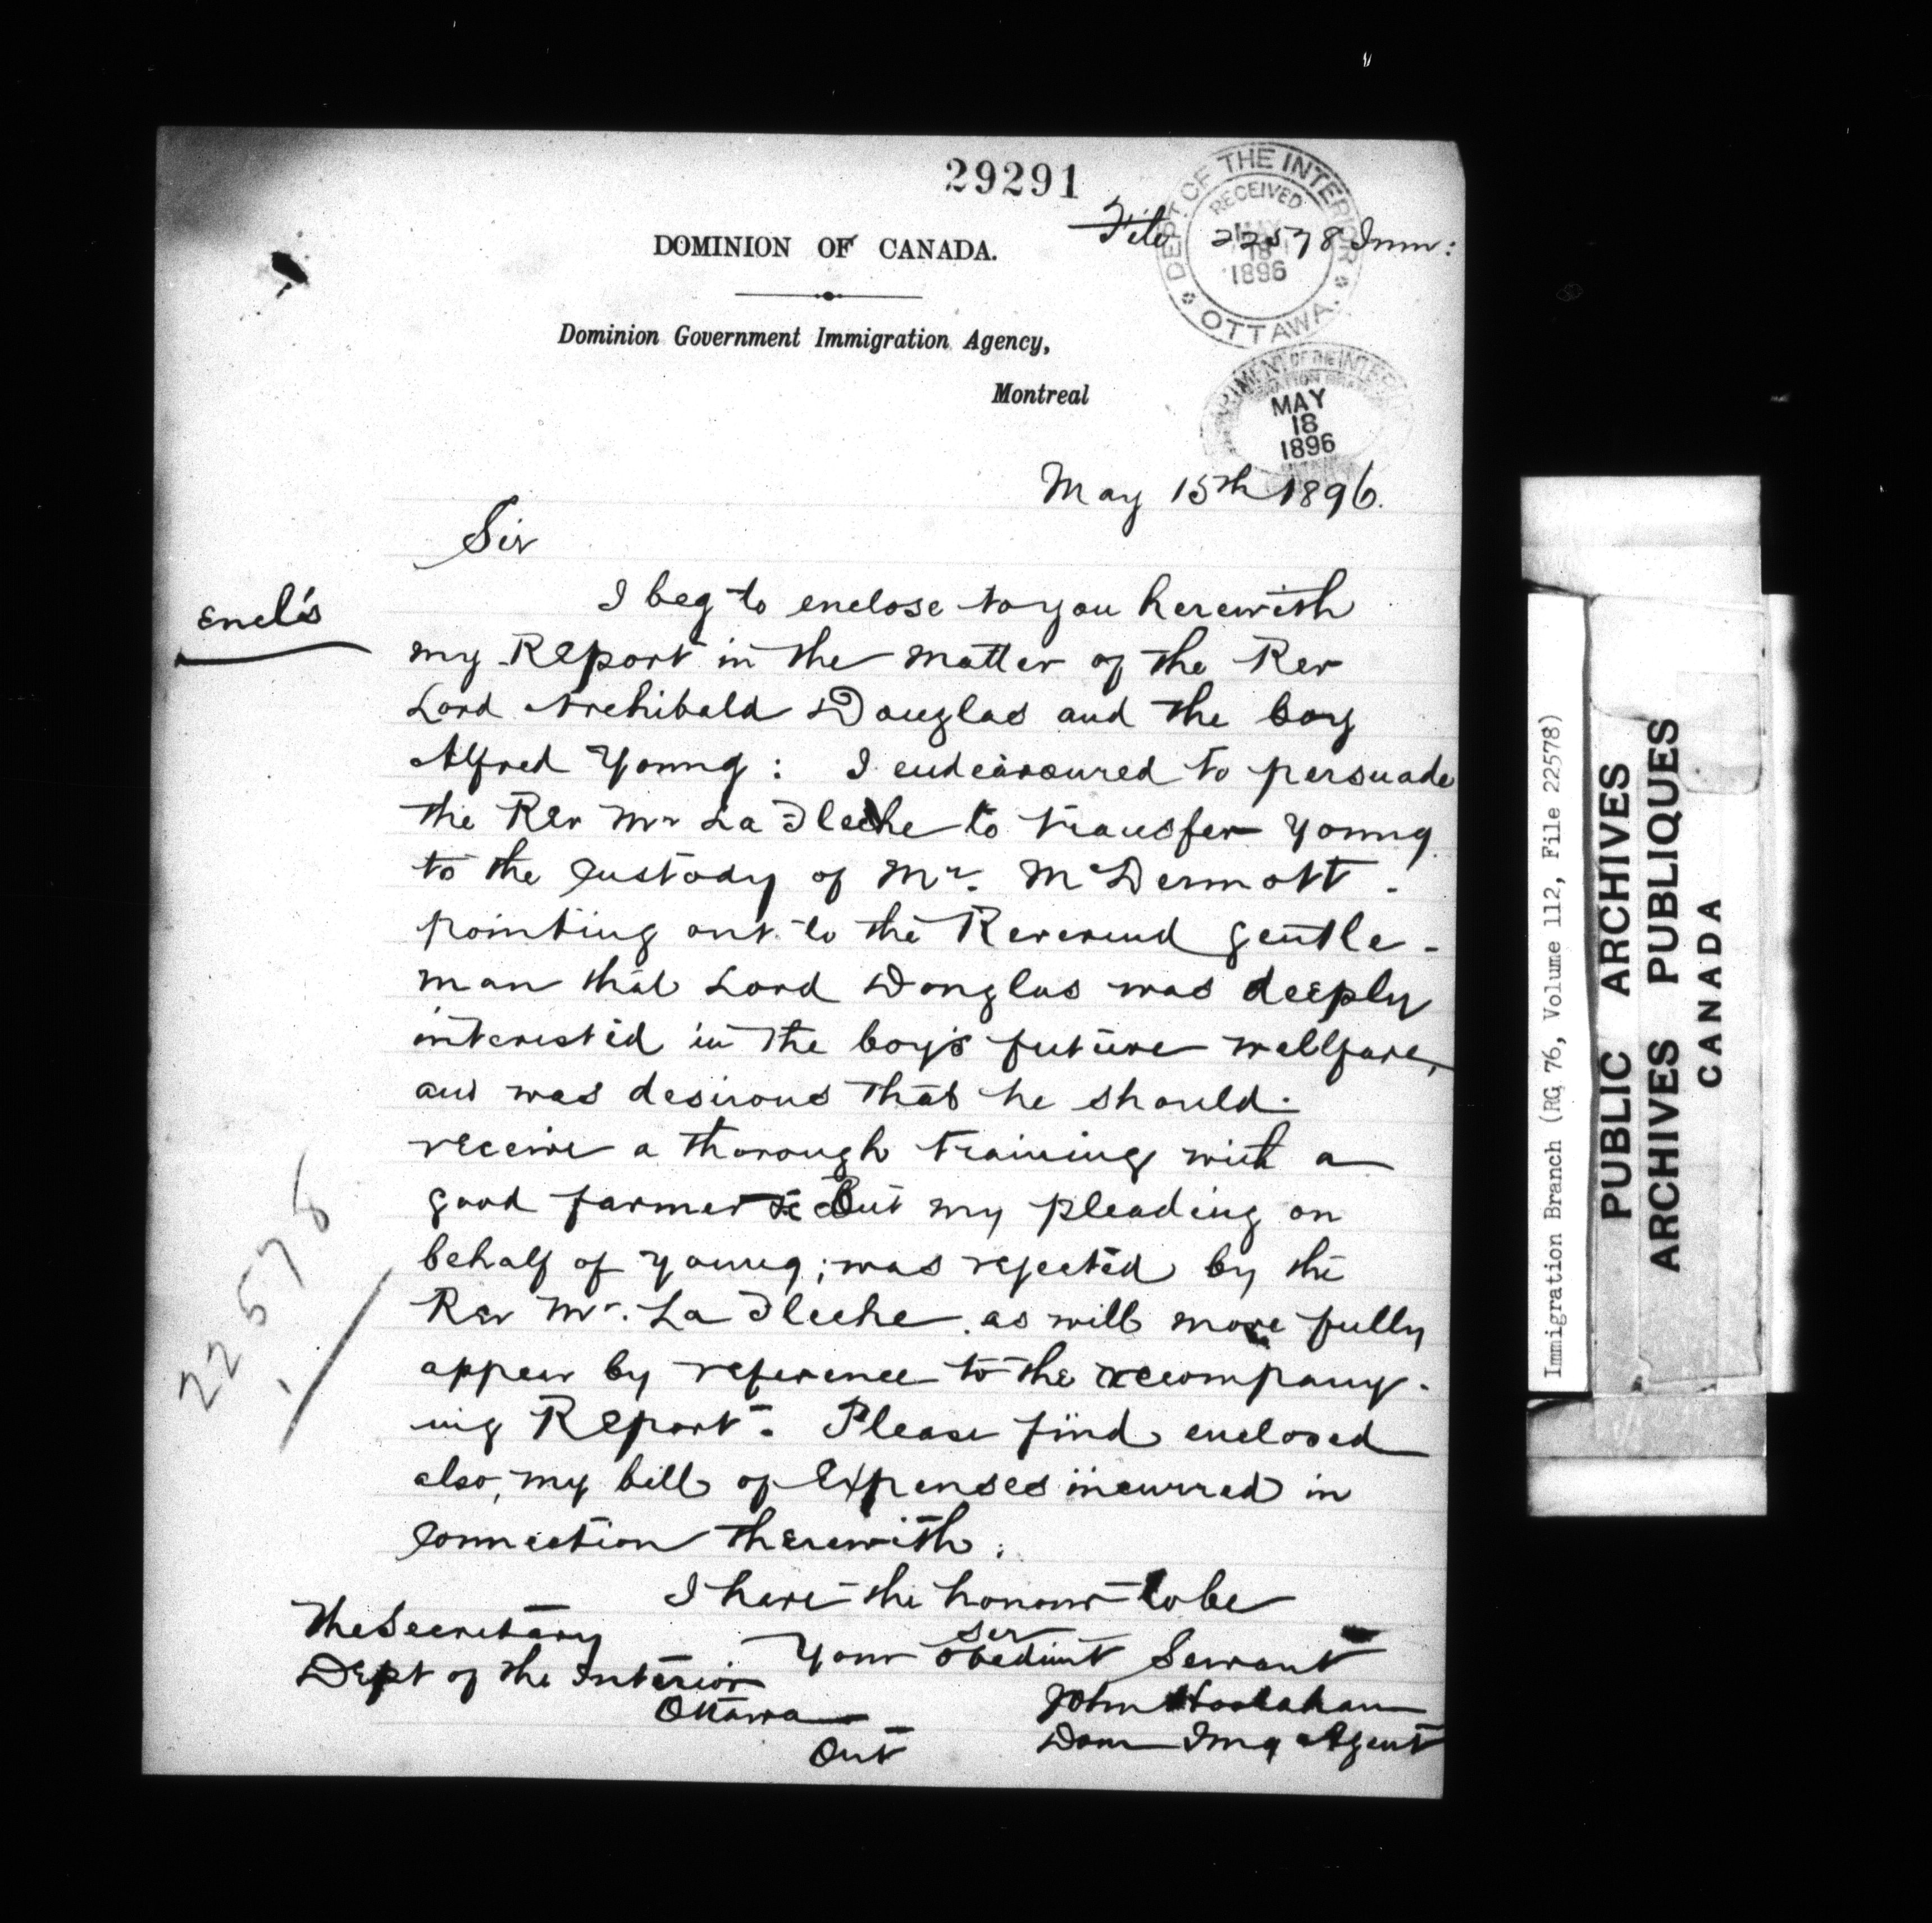 29291
File 22578 Imm:
DEPT OF THE INTERIOR
RECEIVED
MAY
18
1896
OTTAWA.
DOMINION OF CANADA.
Dominion Government Immigration Agency,
Montreal
MAY
18
1896
May 15th 1896.
Sir
Encl's
I beg to enclose to you herewith
my Report in the matter of the Rev
Lord Archibald Douglas and the boy
Alfred Young: I endeavoured to persuade
the Rev Mr La Fleche to transfer Young
to the custody of Mr. McDermott.
pointing out to the Reverend gentle-
man that Lord Douglas was deeply
interested in the boy's future wellfare,
and was desirous that he should.
receive a thorough training with a
good farmer But my pleading on
behalf of Young; was rejected by the
Rev Mr. La Fleche. as will more fully
appear by reference to the accompany-
ing Report. Please find enclosed
also, my bill of Expenses incurred in
connection therewith.
I have the honour to be
Sir
Your obedient Servant
John Hoolahan
Dom Img Agent
The Secretary
Dept of the Interior
Ottawa
Ont
22578
Immigration Branch (RG 76, Volume 112, File 22578)
PUBLIC ARCHIVES
ARCHIVES PUBLIQUES
CANADA